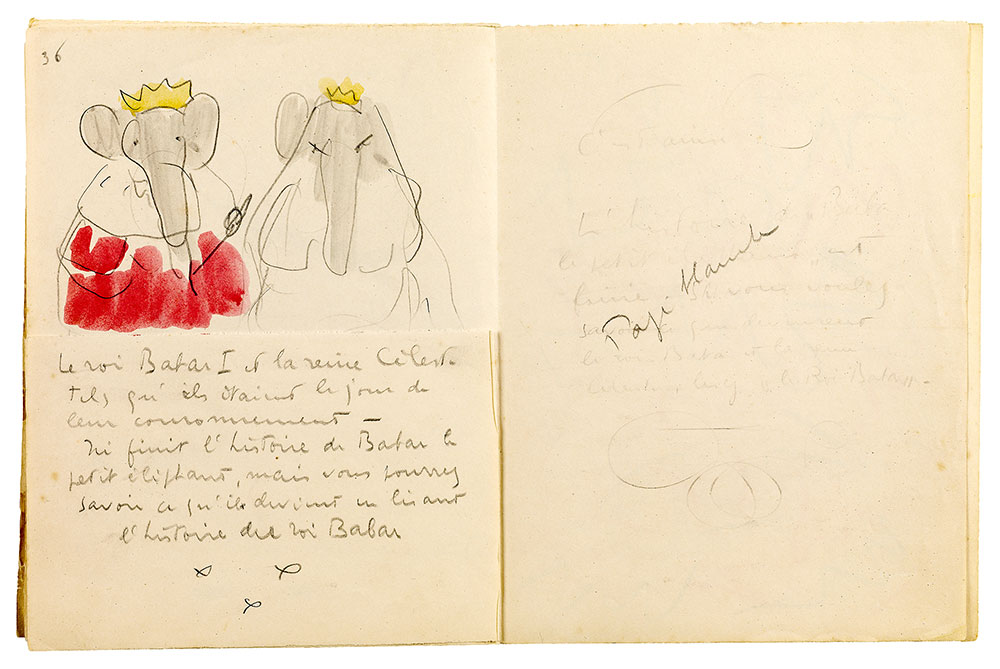 36
Le roi Babar I et la reine Céleste
tels qu'ils étaient le jour de
leur couronnement —
Ici finit l'histoire de Babar le
petit éléphant, mais vous pourrez
savoir ce qu'il devient en lisant
l'histoire du roi Babar
L'histoire de Babar
le petit éléphant, est
finie. Si vous voulez
savoir ce que deviennent
le roi Babar et la reine
le Roi Babar —
Page blanche